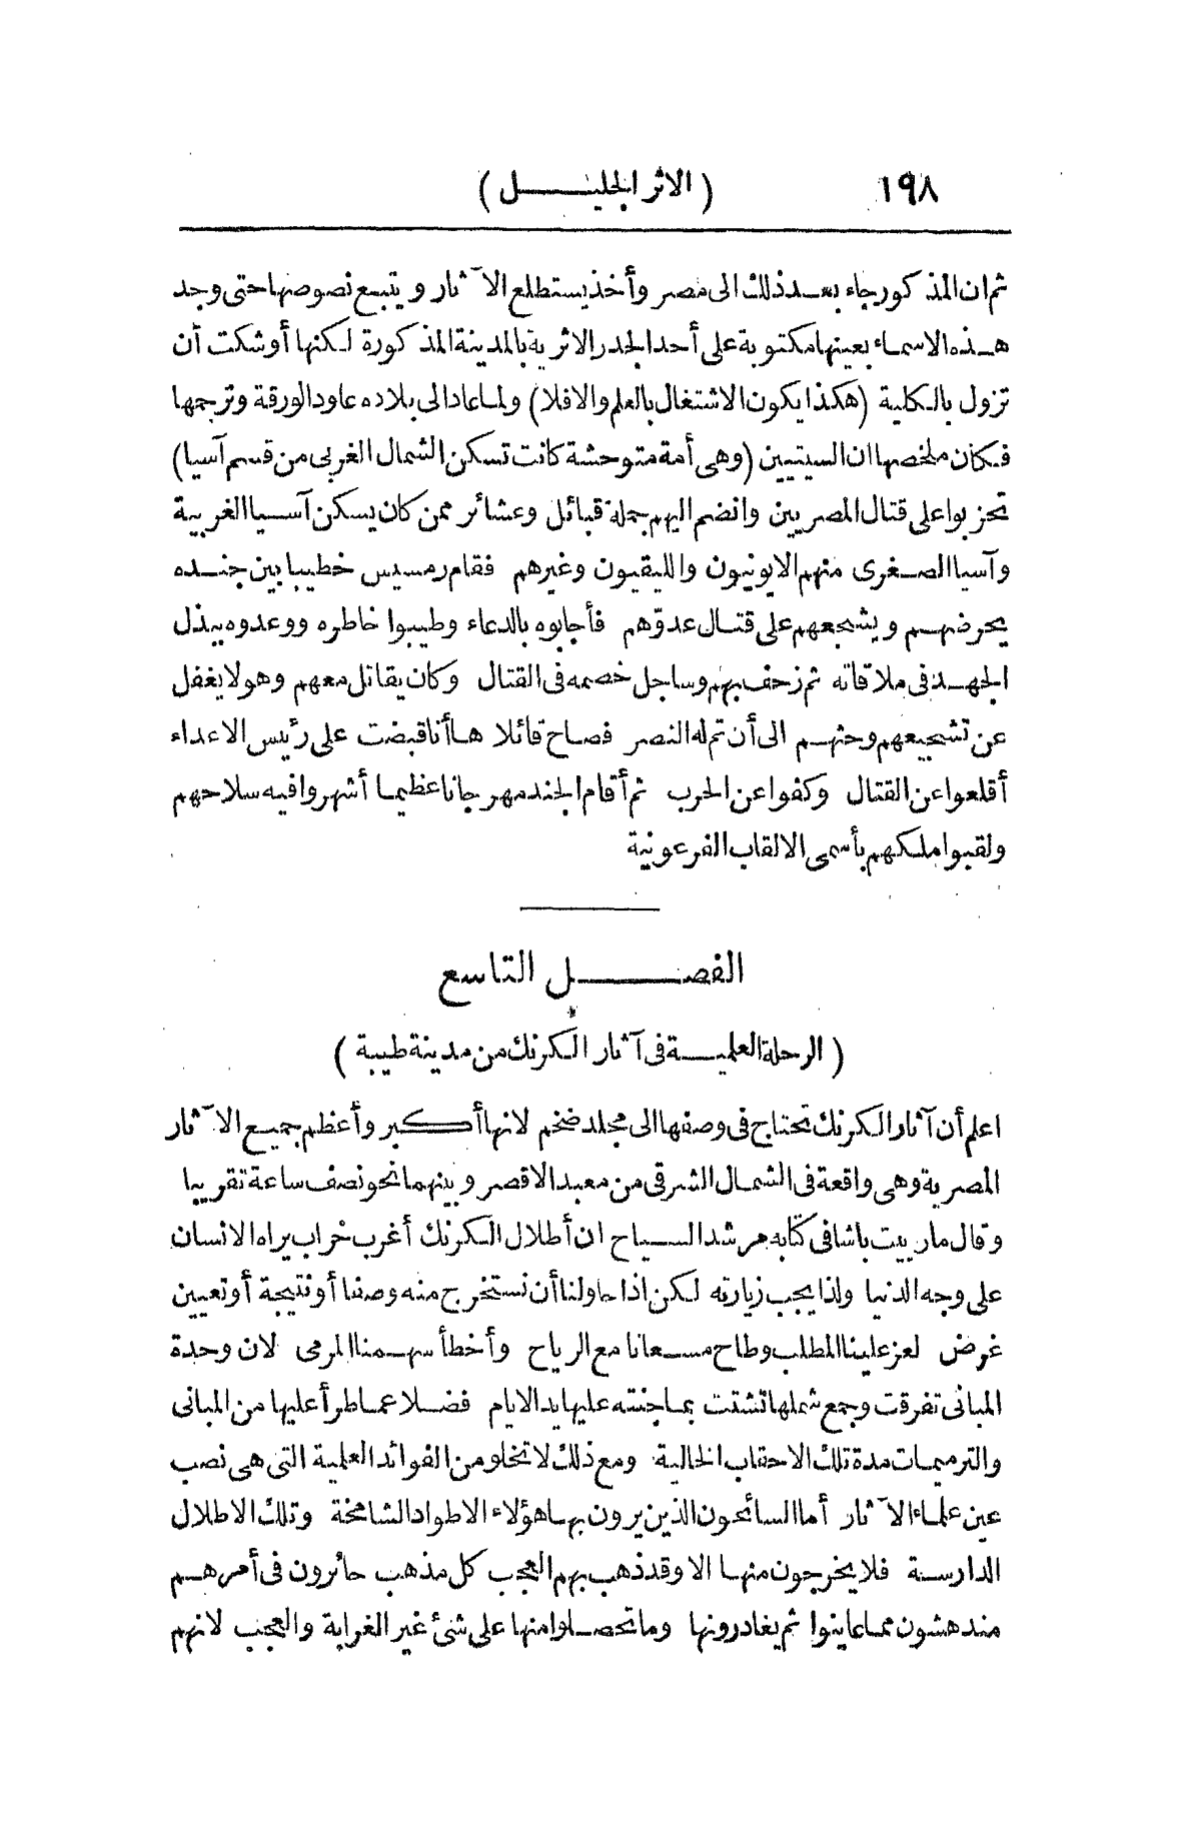 ١٩٨ (الاثر الجليل)
ثم ان المذكور جاء بعد ذلك الى مصر وأخذ يستطلع الآثار ويتبع نصوصها حتى وجد
هذه الاسماء بعينها مكتوبة على أحد الجدر الاثرية بالمدينة المذكورة لكنها أوشكت أن
تزول بالكلية (هكذا يكون الاشتغال بالعلم والافلا) ولما عاد الى بلاده عاود الورقة وترجمها
فكان ملخصها ان السيتيين (وهى أمة متوحشة كانت تسكن الشمال الغربى من قسم آسيا)
تحزبوا على قتال المصريين وانضم اليهم جملة قبائل وعشائر ممن كان يسكن آسيا الغربية
وآسيا الصغرى منهم الايونيون والليقيون وغيرهم فقام رمسيس خطيبا بين جنده
يحرضهم ويشجعهم على قتال عدوّهم فأجابوه بالدعاء وطيبوا خاطره ووعدوه ببذل
الجهد فى ملاقاته ثم زحف بهم وساجل خصمه فى القتال وكان يقاتل معهم وهو لا يغفل
عن تشجيعهم وحثهم الى أن تم له النصر فصاح قائلا ها أنا قبضت على رئيس الاعداء
أقلعوا عن القتال وكفوا عن الحرب ثم أقام الجند مهرجانا عظيما أشهروا فيه سلاحهم
ولقبوا ملكهم بأسمى الالقاب الفرعونية
الفصل التاسع
(الرحلة العلمية فى آثار الكرنك من مدينة طيبة)
اعلم أن آثار الكرنك تحتاج فى وصفها الى مجلد ضخم لانها أكبر وأعظم جميع الآثار
المصرية وهى واقعة فى الشمال الشرقى من معبد الاقصر وبينهما نحو نصف ساعة تقريبا
وقال مارييت باشا فى كتابه مرشد السياح ان أطلال الكرنك أغرب خراب يراه الانسان
على وجه الدنيا ولذا يجب زيارته لكن اذا حاولنا أن نستخرج منه وصفا أو نتيجة أو تعيين
غرض لعز علينا المطلب وطاح مسعانا مع الرياح وأخطأ سهمنا المرمى لان وحدة
المبانى تفرقت وجمع شملها تشتت بما جنته عليها يد الايام فضلا عما طرأ عليها من المبانى
والترميمات مدة تلك الاحقاب الخالية ومع ذلك لا تخلو من الفوائد العلمية التى هى نصب
عين علماء الآثار أما السائحون الذين يرون بها هؤلاء الاطواد الشامخة وتلك الاطلال
الدارسة فلا يخرجون منها الا وقد ذهب بهم العجب كل مذهب حائرون فى أمرهم
مندهشون مما عاينوا ثم يغادرونها وما تحصلوا منها على شئ غير الغرابة والعجب لانهم